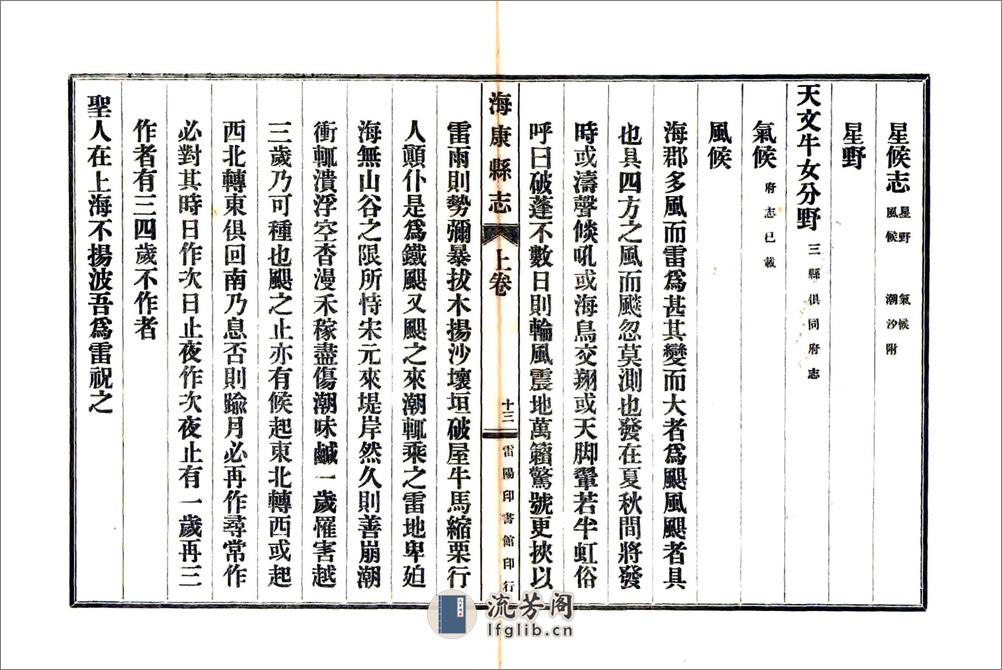 星候志 星野 氣候 風候 潮汐附
星野
天文牛女分野 三縣俱同府志
氣候 府志已載
風候
海郡多風而雷為甚其變而大者為颶風颶者具
也具四方之風而飈忽莫測也發在夏秋間將發
時或濤聲倐吼或海鳥交翔或天脚暈若半虹俗
呼曰破蓬不數日則輪風震地萬籟驚號更挾以
海康縣志 上卷 十三 雷陽印書館印行
雷雨則勢彌暴拔木揚沙壞垣破屋牛馬縮栗行
人顚仆是為鐵颶又颶之來潮輒乘之雷地卑廹
海無山谷之限所恃宋元來堤岸然久則善崩潮
衝輒潰浮空杳漫禾稼盡傷潮味鹹一歲罹害越
三歲乃可種也颶之止亦有候起東北轉西或起
西北轉東俱回南乃息否則踰月必再作尋常作
必對其時日作次日止夜作次夜止有一歲再三
作者有三四歲不作者
聖人在上海不揚波吾為雷祝之
流芳閣
lfglib.cn